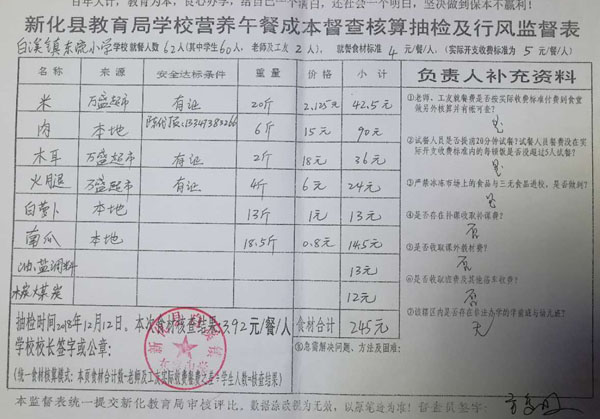 百年大计，教育为本，良心办学，给自己一个清白，还社会一个明白，坚决做到保本不赢利！
新化县教育局学校营养午餐成本督查核算抽检及行风监督表
白溪镇东院小学学校就餐人数62人(其中学生60人，老师及工友2人)， 就餐食材标准4元/餐/人， (实际开支收费标准为5元/餐/人)
名称 来源 安全达标条件 重量 价格 小计 负责人补充资料
米 万盛超市 有证 20斤 2.125元 42.5元
①老师、工友就餐费是否按实际收费标准付到食堂做另外核算并有帐可查？
是
肉 本地 6斤 15元 90元
②试餐人员是否提前20分钟试餐？试餐人员餐费没在实际开支收费标准内的每顿饭是否没超过5人试餐？
是
木耳 万盛超市 有证 2斤 18元 36元
火腿 万盛超市 有证 4斤 6元 24元
③严禁冰冻市场上的食品与三无食品进校，是否做到？
是
白萝卜 本地 13斤 1元 13元
④是否存在补课收取补课费？
否
南瓜 本地 18.5斤 0.8元 14.5元
⑤是否收取课外教材费？
否
油.盐调料 13元
⑥是否收取班费及其他搭车收费？
否
木炭大煤炭 12元
⑦该辖区内是否存在非法办学的学前班与幼儿班？
无
抽检时间2018年12月12日，本次食材核查结果：3.92元/餐/人 食材合计 245元
学校校长签字或公章：
⑧急需解决问题、方法及困难：
(统一食材核算模式：本页食材合计数-老师及工友实际收费餐费之差÷学生人数=核查结果)
督查员签字：
本监督表统一提交新化教育局审核评比。数据涂改视为无效，以原笔迹为准！